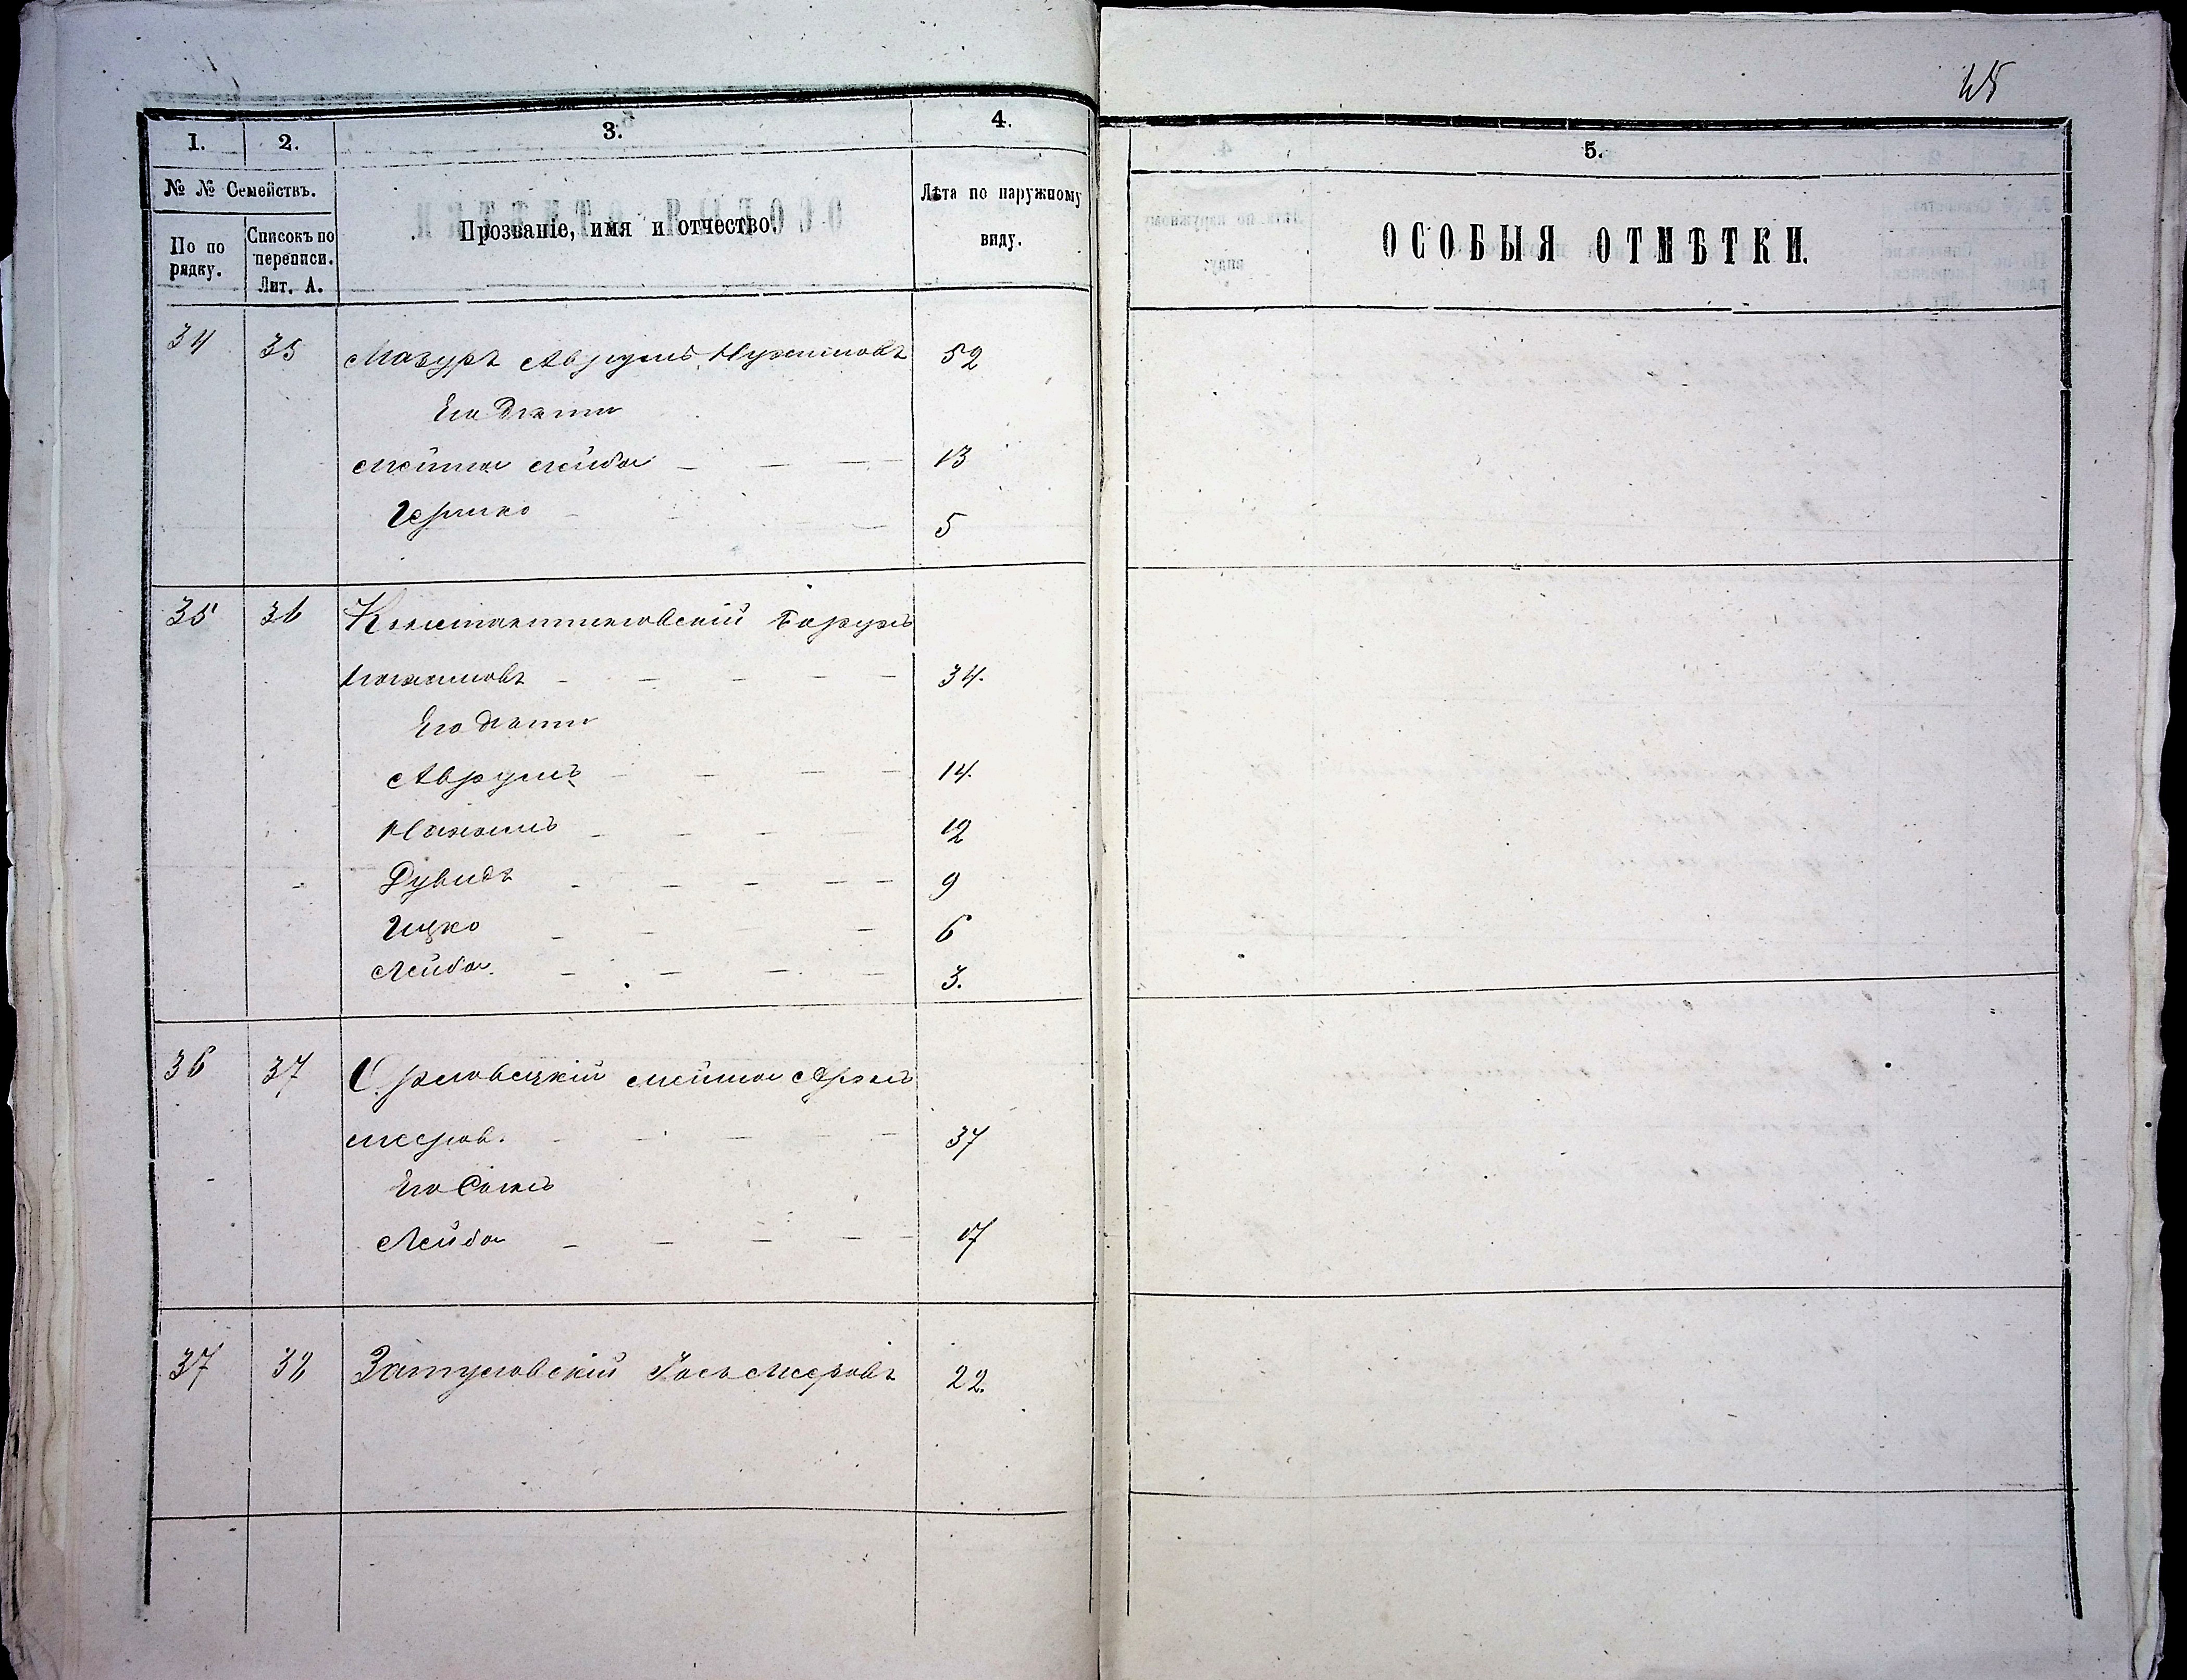 1. 2. 3. 4.
№ № Семействъ.
По по рядку.
Списокъ по переписи. Лит. А.
Прозваніе, имя и отчество.
Лѣта по наружному виду.
34 35 Мазуръ Аврумъ Нухимовъ 52
Его дѣти
Мошка Лейба 13
Гершко 5
35 36 Константиновскій Борухъ
Нахимовъ 34.
Его дѣти
Аврумъ 14.
Нахимъ 12
Дувидъ 9
Ицко 6
Лейба. 3.
36 37 Орловецкій Мошка Аронъ
Меров. 37
Его Сынъ
Лейба 17
37 38 Затуловскій Іось Меровъ 22.
5.
ОСОБЫЯ ОТМѢТКИ.